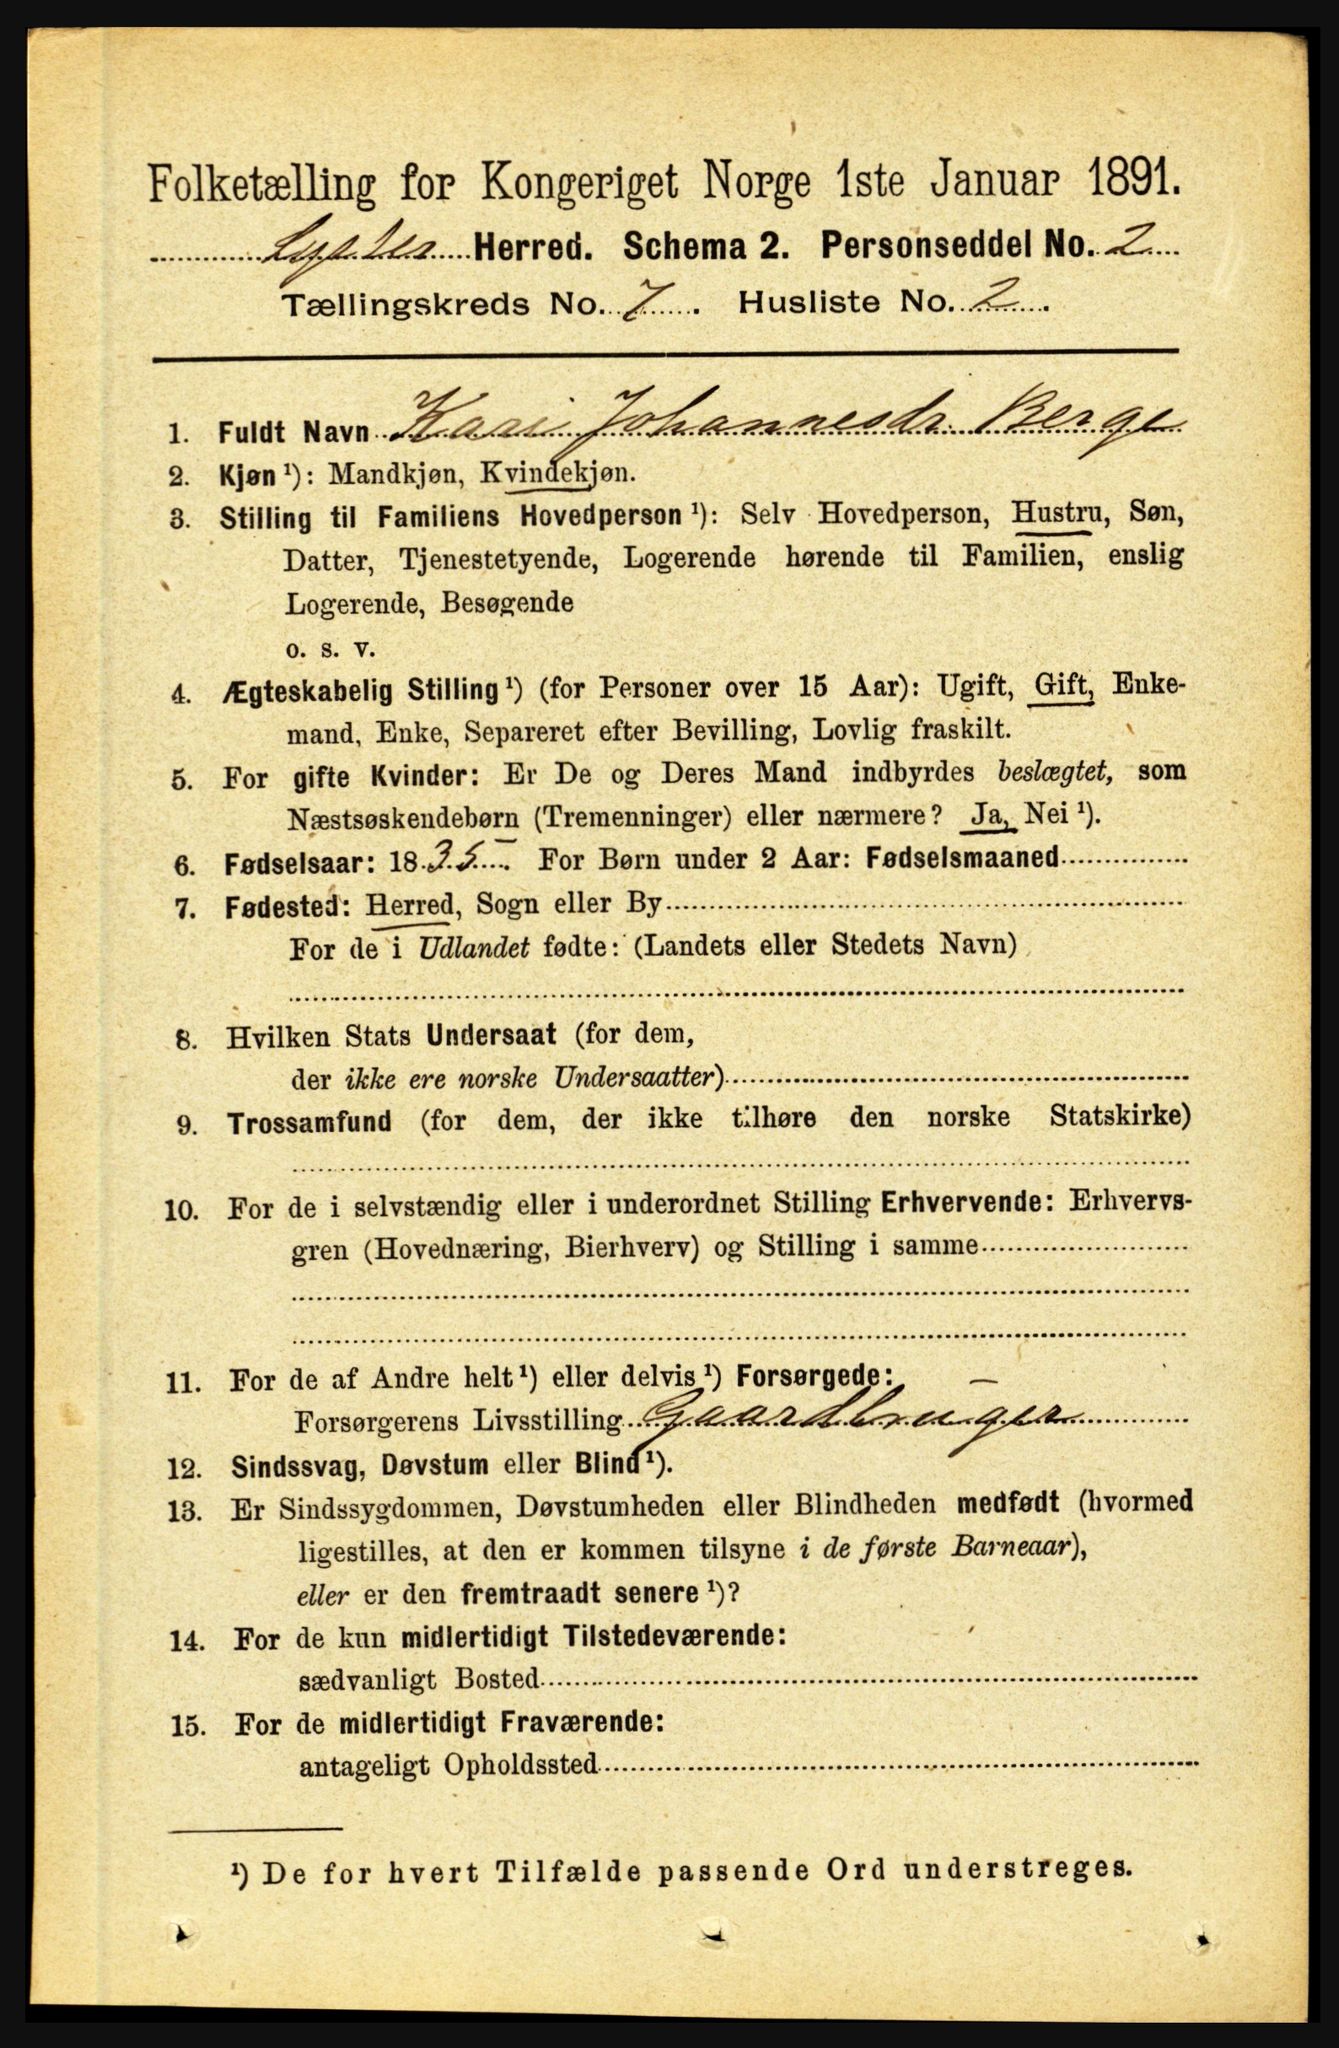 Folketælling for Kongeriget Norge 1ste Januar 1891.
Lyster Herred. Schema 2. Personseddel No. 2
Tællingskreds No. 7. Husliste No. 2.
1. Fuldt Navn Kari Johannesdr. Berge
2. Kjøn ¹): Mandkjøn, Kvindekjøn.
3. Stilling til Familiens Hovedperson ¹): Selv Hovedperson, Hustru, Søn,
Datter, Tjenestetyende, Logerende hørende til Familien, enslig
Logerende, Besøgende
o. s. v.
4. Ægteskabelig Stilling ¹) (for Personer over 15 Aar): Ugift, Gift, Enke-
mand, Enke, Separeret efter Bevilling, Lovlig fraskilt.
5. For gifte Kvinder: Er De og Deres Mand indbyrdes beslægtet, som
Næstsøskendebørn (Tremenninger) eller nærmere? Ja, Nei ¹).
6. Fødselsaar: 1835. For Børn under 2 Aar: Fødselsmaaned
7. Fødested: Herred, Sogn eller By
For de i Udlandet fødte: (Landets eller Stedets Navn)
8. Hvilken Stats Undersaat (for dem,
der ikke ere norske Undersaatter)
9. Trossamfund (for dem, der ikke tilhøre den norske Statskirke)
10. For de i selvstændig eller i underordnet Stilling Erhvervende: Erhvervs-
gren (Hovednæring, Bierhverv) og Stilling i samme
11. For de af Andre helt ¹) eller delvis ¹) Forsørgede:
Forsørgerens Livsstilling Gaardbruger
12. Sindssvag, Døvstum eller Blind ¹).
13. Er Sindssygdommen, Døvstumheden eller Blindheden medfødt (hvormed
ligestilles, at den er kommen tilsyne i de første Barneaar),
eller er den fremtraadt senere ¹)?
14. For de kun midlertidigt Tilstedeværende:
sædvanligt Bosted
15. For de midlertidigt Fraværende:
antageligt Opholdssted
¹) De for hvert Tilfælde passende Ord understreges.